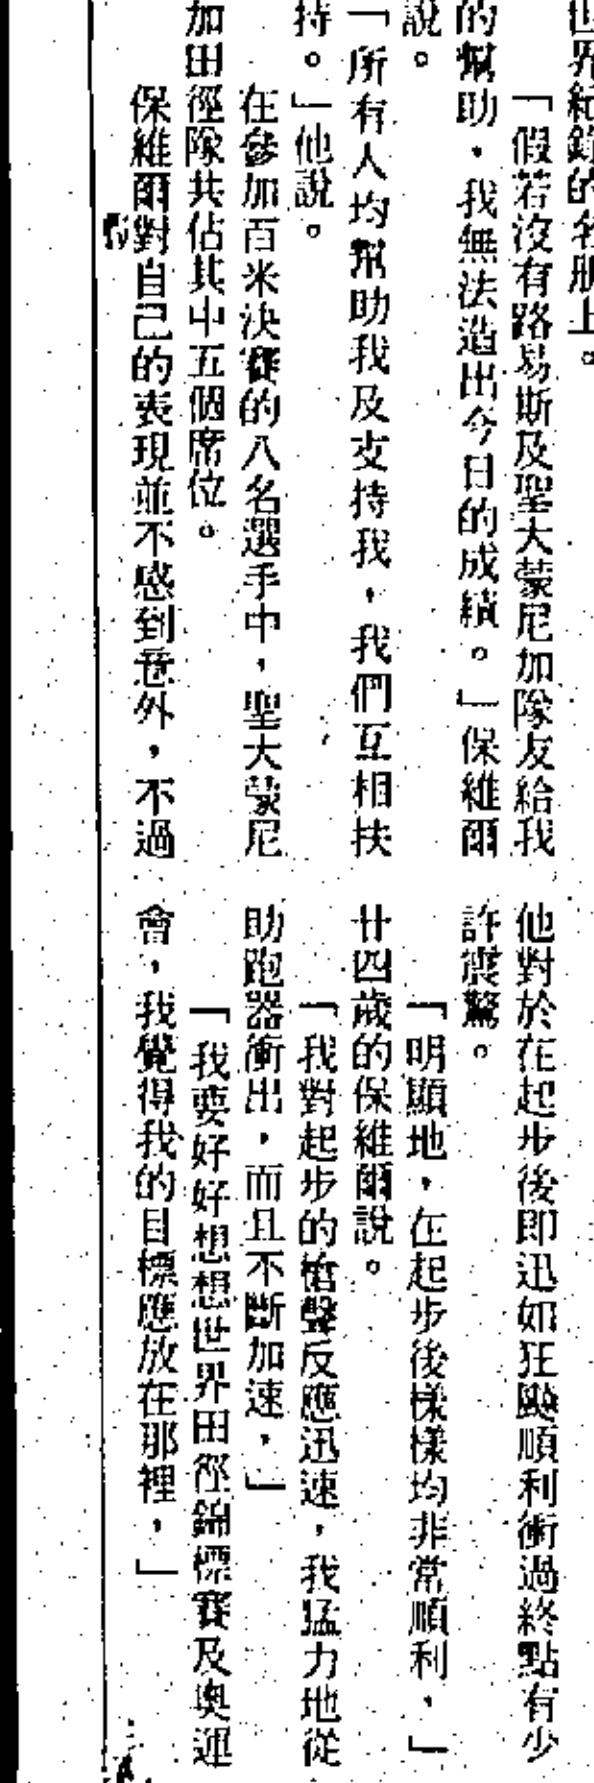 世界紀錄的名册上。
「假若沒有路易斯及聖大蒙尼加隊友給我
的幫助，我無法造出今日的成績。」保維爾
說。
「所有人均幫助我及支持我，我們互相扶
持。」他說。
在參加百米決賽的八名選手中，聖大蒙尼
加田徑隊共佔其中五個席位。
保維爾對自己的表現並不感到意外，不過
他對於在起步後即迅如狂飈順利衝過終點有少
許震驚。
「明顯地，在起步後樣樣均非常順利，」
廿四歲的保維爾說。
「我對起步的槍聲反應迅速，我猛力地從
助跑器衝出，而且不斷加速，」
「我要好好想想世界田徑錦標賽及奧運
會，我覺得我的目標應放在那裡，」